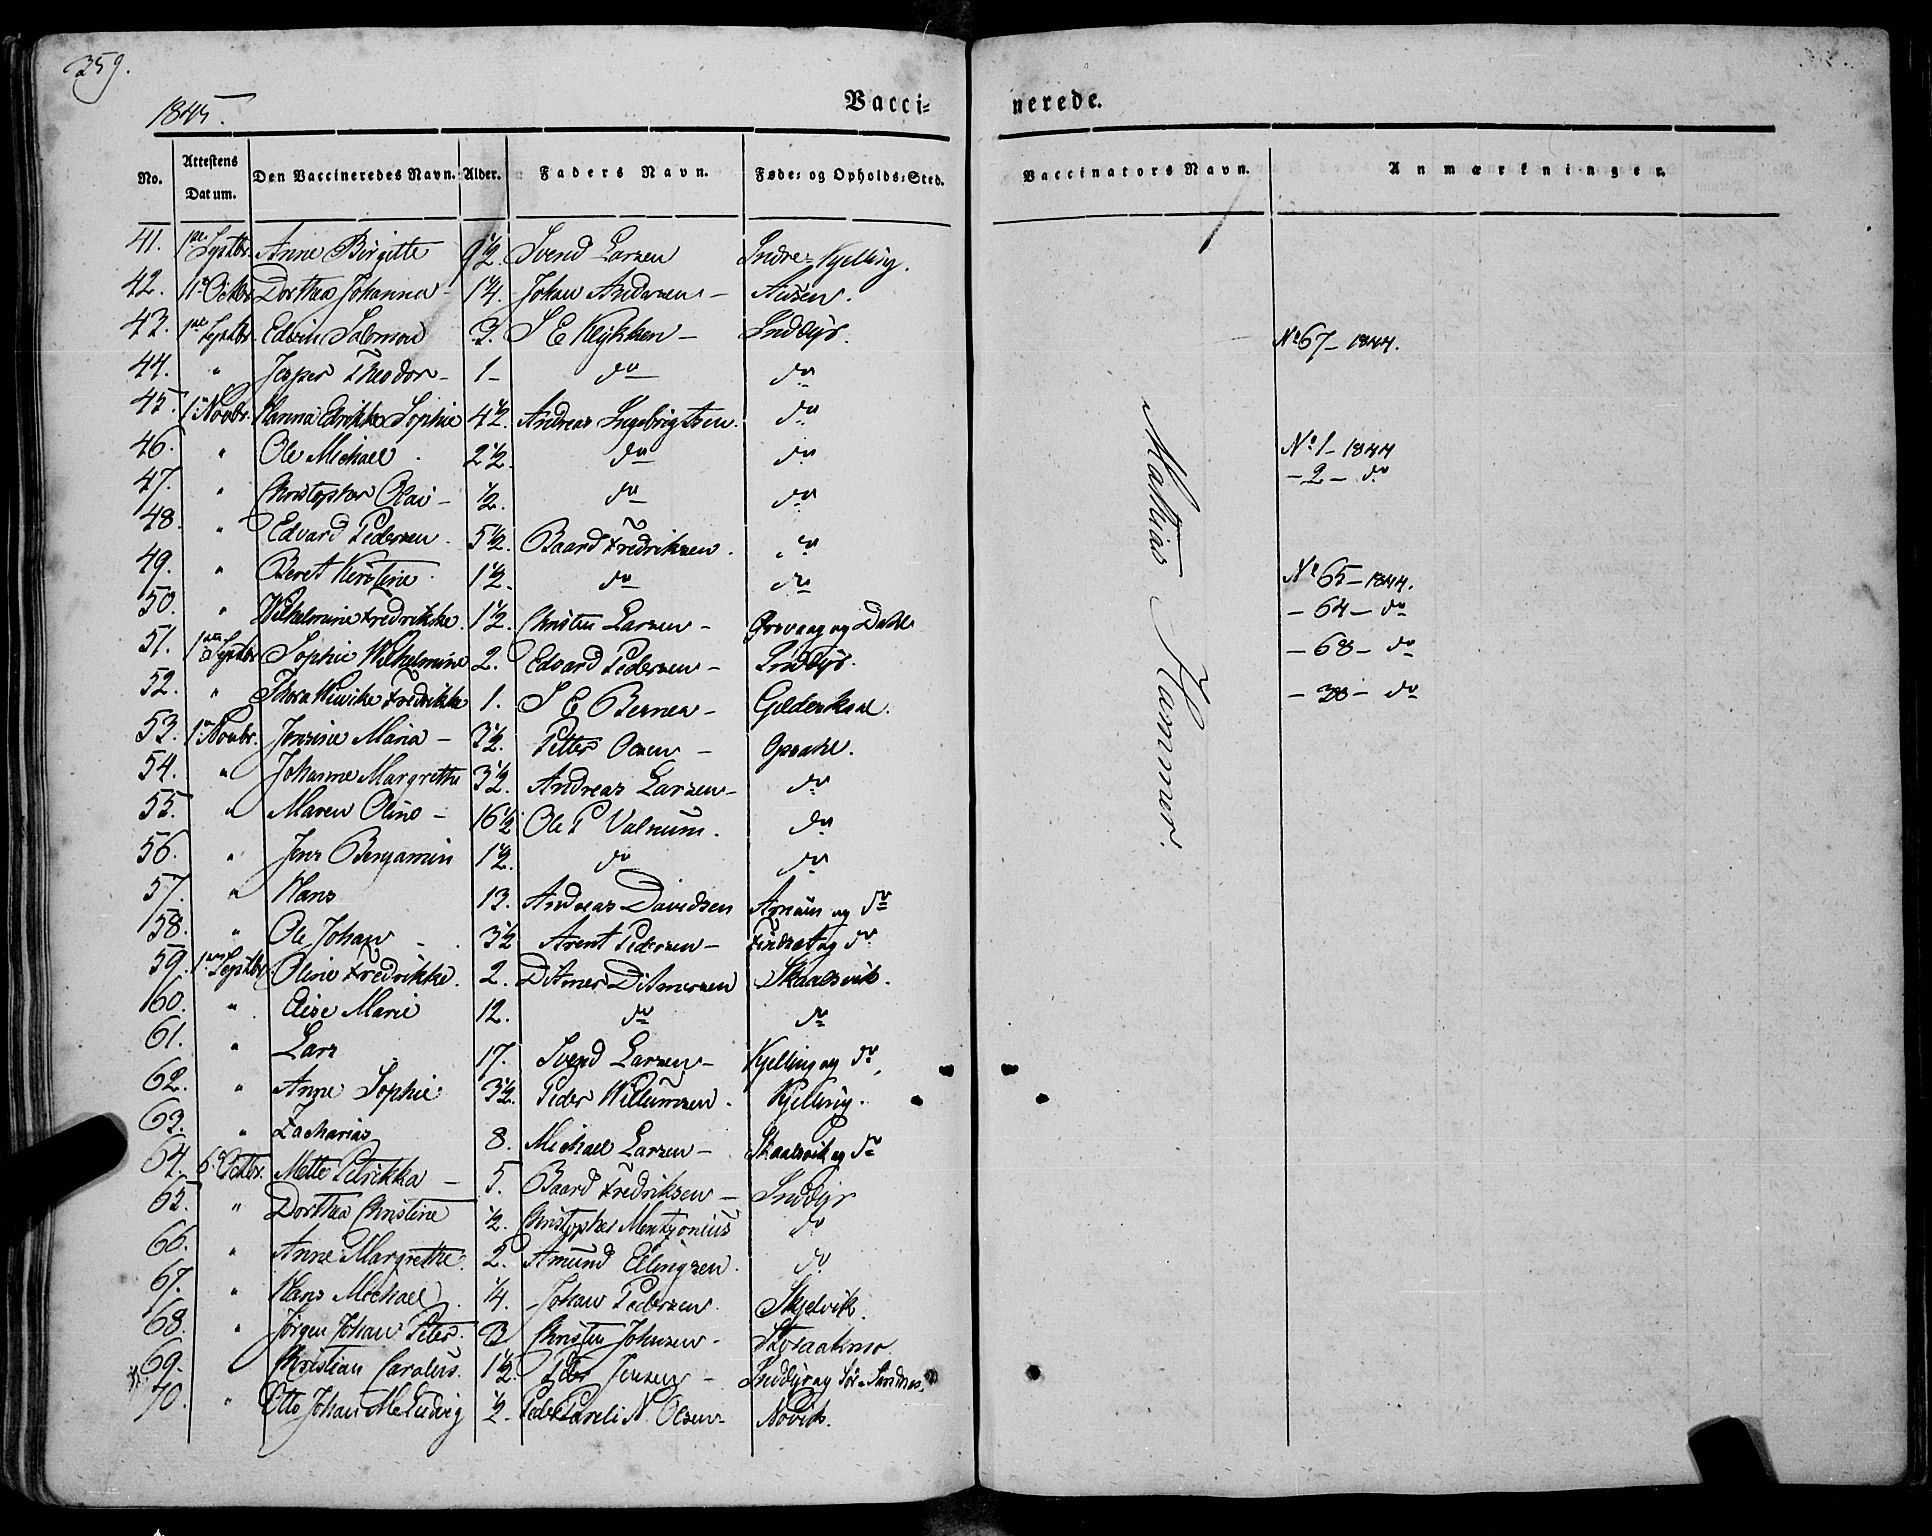 359.
1845.
Vacci= nerede.
No. Attestens Datum. Den Vaccineredes Navn. Alder. Faders Navn. Føde= og Opholds=Sted. Vaccinators Navn. Anmærkninger.
41. Septbr. Anne Birgitte 9 1/2. Svend Larsen Indre=Kjelling.
42. Octbr. Dorthea Johanna 1/4. Johan Andersen –
43. Septbr. Edvin Salomon 3. S E – Inddyr. No 67 – 1844.
44. " Jesper Theodor – 1 – do do
45. 1 Novbr. Hanna Sophie 4 1/2. Andreas Ingebrigtsen. do
46. " Ole Michael 2 1/2. do do No 1 – 1844
47. " Christopher Olai – 1/2. do do – 2 – do
48. " Edvard Pedersen. 5 1/2. Baard Fredriksen. do
49. " Beret Kirstine. 1 1/2. do do No 65 – 1844.
50. " Wilhelmine Fredrikke. 1 1/2. Christen Larsen – og Dahl – 64 – do
51. Septbr. Sophie Wilhelmine 2. Edvard Pedersen – Inddyr. – 68 – do
52. " Thora Fredrikke 1. S E – Gildeskaal. – 38 – do
53. 1 Novbr. Jensine Maria – 3 1/2. Petter Olsen – Opsahl.
54. " Johanne Margrethe 3 1/2. Andreas Larsen – do
55. " Maren Oline – 16 1/2 Ole P Valnum. do
56. " Jens Benjamin 1 1/2. do do
57. " Hans 13. Andreas Davidsen og do
58. " Ole Johan – 3 1/2 Arent Pedersen – og do
59. Septbr. Oline Fredrikke. 2. Ditmer Ditmersen Skaalsvik.
60. " Elise Marie 12. do do
61. " Lars 17. Svend Larsen – Kjelling og do
62. " Anne Sophie 3 1/2. Peder Willumsen. Kjelling.
63. " Zacharias 8. Michael Larsen – Skaalsvik og do
64. Octbr. Mette Petrikka – 5. Baard Fredriksen – Inddyr
65. " Dorthea Christine 1/2. Christopher Mentzonius do
66. " Anne Margrethe. 2. Amund Ellingsen. do
67. " Hans Michael 1/4. Johan Pedersen. Skjelvik.
68. " Jørgen Johan Peter. 3 Christen Johnsen. Storaakmo
69. " Christian Carolus. 1 1/2. Peter Jensen – Inddyr og Sør=Sandnes.
70. " Otto Johan Ludvig 1/2. Pareli N. Olsen – Novik.
Mathias Hammer.